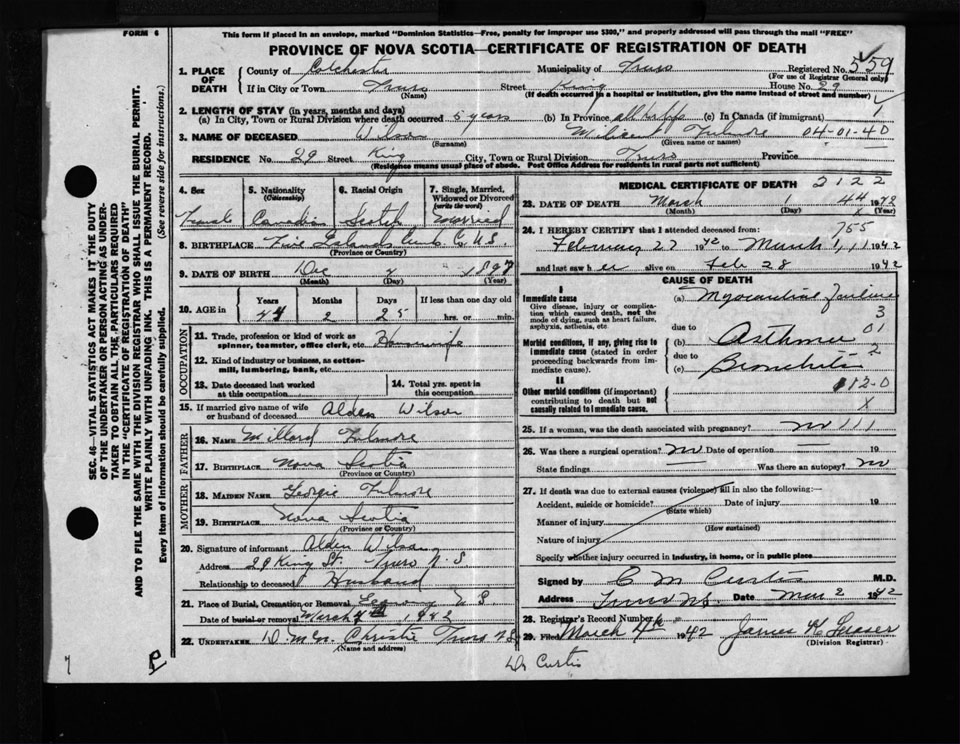 FORM 6
This form if placed in an envelope, marked "Dominion Statistics—Free, penalty for improper use $300," and properly addressed will pass through the mail "FREE"
PROVINCE OF NOVA SCOTIA—CERTIFICATE OF REGISTRATION OF DEATH
SEC. 46—VITAL STATISTICS ACT MAKES IT THE DUTY
OF THE UNDERTAKER OR PERSON ACTING AS UNDER-
TAKER TO OBTAIN ALL THE PARTICULARS REQUIRED
IN THE "CERTIFICATE OF REGISTRATION OF DEATH"
AND TO FILE THE SAME WITH THE DIVISION REGISTRAR WHO SHALL ISSUE THE BURIAL PERMIT.
WRITE PLAINLY WITH UNFADING INK. THIS IS A PERMANENT RECORD.
Every item of information should be carefully supplied. (See reverse side for instructions.)
1. PLACE OF DEATH County of Colchester Municipality of Truro Registered No. 559
(For use of Registrar General only)
If in City or Town Truro Street King House No. 29
(Name) (If death occurred in a hospital or institution, give the name instead of street and number)
2. LENGTH OF STAY (in years, months and days)
(a) In City, Town or Rural Division where death occurred 5 years (b) In Province all her life (c) In Canada (if immigrant)
3. NAME OF DECEASED Wilson Milicent Fulmore 04-01-40
(Surname) (Given name or names)
RESIDENCE No. 29 Street King City, Town or Rural Division Truro Province
(Residence means usual place of abode. Post Office Address for residents in rural parts not sufficient)
4. Sex 5. Nationality (Citizenship) 6. Racial Origin 7. Single, Married, Widowed or Divorced (write the word)
Female Canadian Scotch Married
8. BIRTHPLACE Five Islands Cumb. Co. N.S.
(Province or Country)
9. DATE OF BIRTH Dec 1897
(Month) (Day) (Year)
10. AGE in Years Months Days If less than one day old
44 2 25 hrs. or min.
OCCUPATION
11. Trade, profession or kind of work as spinner, teamster, office clerk, etc. Housewife
12. Kind of industry or business, as cotton-mill, lumbering, bank, etc.
13. Date deceased last worked at this occupation 14. Total yrs. spent in this occupation
15. If married give name of wife or husband of deceased Alden Wilson
FATHER
16. NAME Millard Fulmore
17. BIRTHPLACE Nova Scotia
(Province or Country)
MOTHER
18. MAIDEN NAME Georgie Fulmore
19. BIRTHPLACE Nova Scotia
(Province or Country)
20. Signature of informant Alden Wilson
Address 29 King St. Truro N.S
Relationship to deceased Husband
21. Place of Burial, Cremation or Removal Economy N.S.
Date of burial or removal March 4th 1942
22. UNDERTAKER D. McG. Christie Truro N.S
(Name and address)
MEDICAL CERTIFICATE OF DEATH 2122
23. DATE OF DEATH March 1 44 1942
(Month) (Day) (Year)
24. I HEREBY CERTIFY that I attended deceased from: 755
February 27 1942 to March 1, 1942
and last saw her alive on Feb 28 1942
CAUSE OF DEATH
I
Immediate cause
Give disease, injury or complication which caused death, not the mode of dying, such as heart failure, asphyxia, asthenia, etc.
(a) Myocardial Failure
3
due to 01
Morbid conditions, if any, giving rise to immediate cause (stated in order proceeding backwards from immediate cause).
(b) Asthma
due to 2
(c) Bronchitis
II
Other morbid conditions (if important) contributing to death but not causally related to immediate cause.
112-0
X
25. If a woman, was the death associated with pregnancy? no 111
26. Was there a surgical operation? no Date of operation 19
State findings — Was there an autopsy? no
27. If death was due to external causes (violence) fill in also the following:—
Accident, suicide or homicide? Date of injury 19
(State which)
Manner of injury
(How sustained)
Nature of injury
Specify whether injury occurred in industry, in home, or in public place
Signed by C M Curtis M.D.
Address Truro N.S. Date Mar 2 1942
28. Registrar's Record Number
29. Filed March 4th 1942 James K Fraser
(Division Registrar)
Dr Curtis